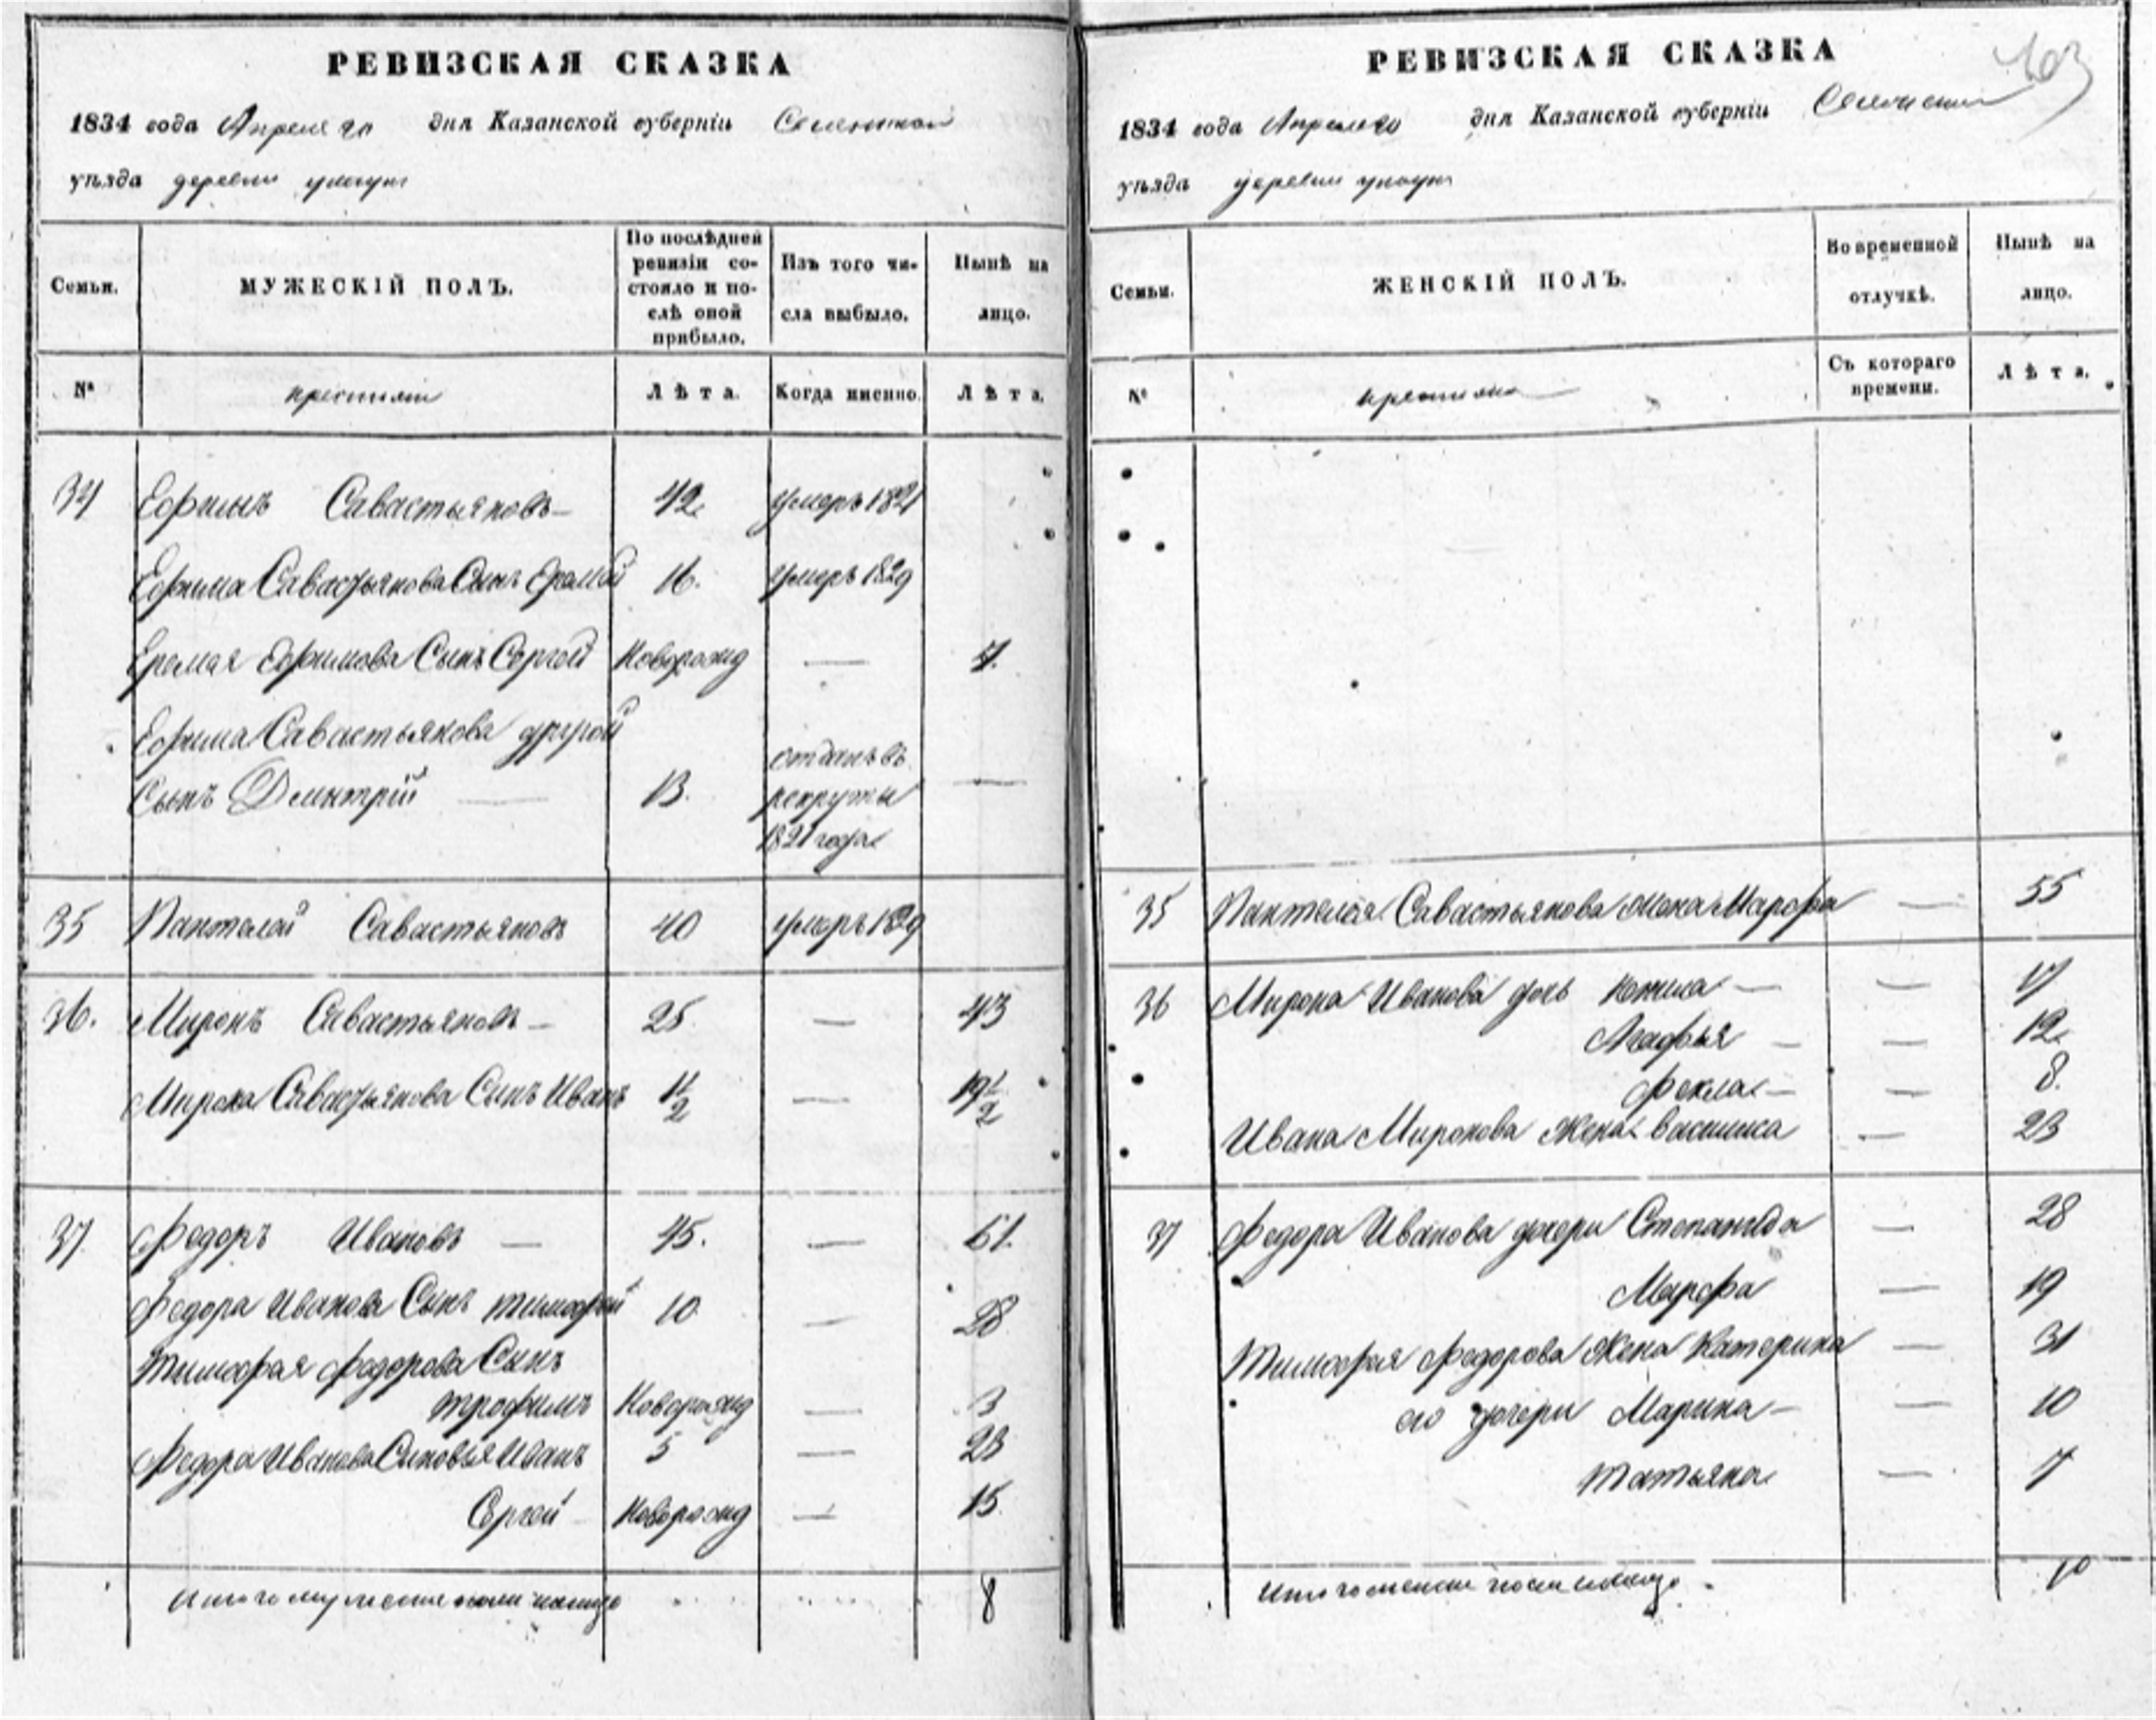 РЕВИЗСКАЯ СКАЗКА
1834 года Апреля 20 дня Казанской губерніи
уѣзда деревни
Семьи. МУЖЕСКІЙ ПОЛЪ. По послѣдней ревизіи состояло и послѣ оной прибыло. Изъ того числа выбыло. Нынѣ на лицо.
№ Лѣта. Когда имено. Лѣта.
34 Ефимъ Савастьяновъ 42 умеръ 1821
Ефима Савастьянова Сынъ Еремей 16. умеръ 1829
Еремея Ефимова Сынъ Сергей Новорожд — 7.
Ефима Савастьянова другой
Сынъ Дмитрій — 13. отданъ въ рекруты 1821 года —
35 Пантелей Савастьяновъ 40 умеръ 1829
36. Миронъ Савастьяновъ — 25 — 43
Мирона Савастьянова Сынъ Иванъ 1 1/2 — 19 1/2
37 Федоръ Ивановъ — 45. — 61.
Федора Иванова Сынъ Тимофей 10 — 28
Тимофея Федорова Сынъ
Трофимъ Новорожд — 3
Федора Иванова Сыновья Иванъ 5 — 23
Сергей Новорожд — 15
Итого мужеска пола на лицо 8
РЕВИЗСКАЯ СКАЗКА
103
1834 года Апреля 20 дня Казанской губерніи
уѣзда деревни
Семьи. ЖЕНСКІЙ ПОЛЪ. Во временной отлучкѣ. Нынѣ на лицо.
№ Съ котораго времени. Лѣта.
35 Пантелея Савастьянова жена Марфа — 55
36 Мирона Иванова дочь — — 17
Агафья — — 12
Фекла — — 8.
Ивана Миронова жена Василиса — 23
37 Федора Иванова дочери Степанида — 28
Марфа — 19
Тимофея Федорова жена Катерина — 31
его дочери Марина — — 10
Татьяна — 7
Итого женска пола на лицо. 10